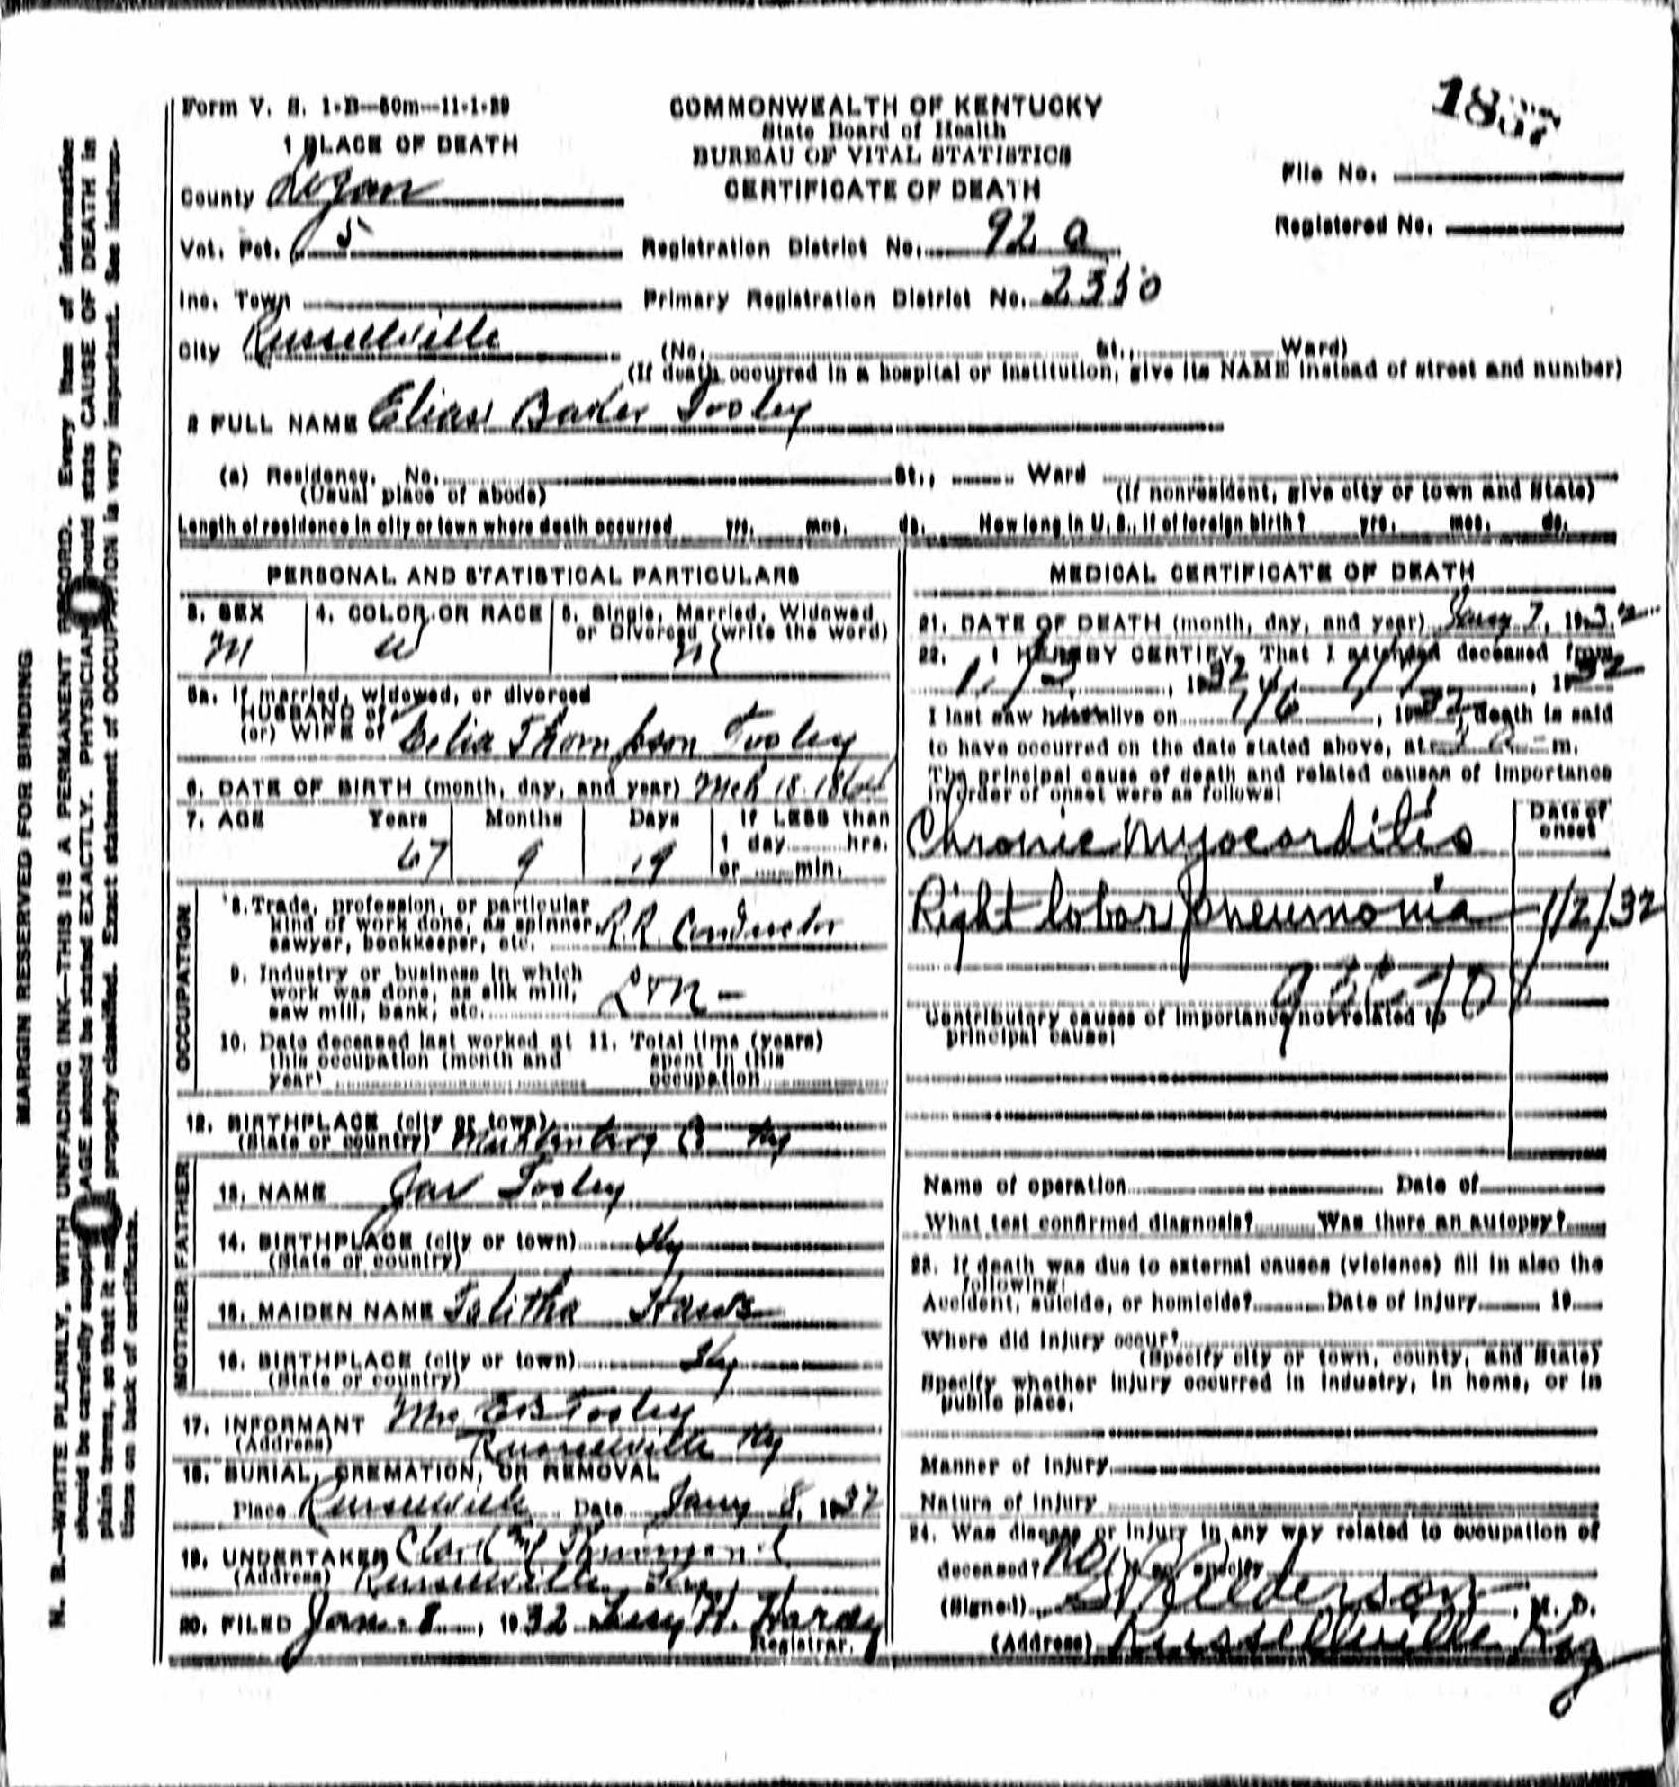 Form V. S. 1-B—50m—11-1-29
COMMONWEALTH OF KENTUCKY
State Board of Health
BUREAU OF VITAL STATISTICS
CERTIFICATE OF DEATH
1 PLACE OF DEATH
County Logan
Vot. Pct. 5
Inc. Town
City Russellville
Registration District No. 92 a
Primary Registration District No. 2350
(No. St., Ward)
(If death occurred in a hospital or institution, give its NAME instead of street and number)
File No.
Registered No.
2 FULL NAME Elias Baker Tooley
(a) Residence. No. St., Ward
(Usual place of abode) (If nonresident, give city or town and State)
Length of residence in city or town where death occurred yrs. mos. ds. How long in U. S., if of foreign birth? yrs. mos. ds.
PERSONAL AND STATISTICAL PARTICULARS
3. SEX M
4. COLOR OR RACE W
5. Single, Married, Widowed, or Divorced (write the word) M
5a. If married, widowed, or divorced
HUSBAND of
(or) WIFE of Celia Thompson Tooley
6. DATE OF BIRTH (month, day, and year) Mch 18 1864
7. AGE Years Months Days If LESS than
1 day hrs.
67 9 19 or min.
OCCUPATION
8. Trade, profession, or particular
kind of work done, as spinner
sawyer, bookkeeper, etc. R.R. Conductor
9. Industry or business in which
work was done, as silk mill,
saw mill, bank, etc. L & N
10. Date deceased last worked at
this occupation (month and
year)
11. Total time (years)
spent in this
occupation
12. BIRTHPLACE (city or town)
(State or country) Muhlenberg Co Ky
FATHER
13. NAME Jas Tooley
14. BIRTHPLACE (city or town) Ky
(State or country)
MOTHER
15. MAIDEN NAME Talitha
16. BIRTHPLACE (city or town) Ky
(State or country)
17. INFORMANT Mrs E B Tooley
(Address) Russellville Ky
18. BURIAL, CREMATION, OR REMOVAL
Place Russellville Date Jany 8, 1932
19. UNDERTAKER
(Address) Russellville Ky
20. FILED Jan. 8, 1932 H. Hardy
Registrar.
MEDICAL CERTIFICATE OF DEATH
21. DATE OF DEATH (month, day, and year) Jany 7, 1932
22. I HEREBY CERTIFY, That I attended deceased from
1/2, 1932, 1/7, 1932
I last saw him alive on 1/6, 1932, death is said
to have occurred on the date stated above, at m.
The principal cause of death and related causes of importance
in order of onset were as follows:
Date of
onset
Chronic Myocarditis
Right lobar pneumonia 1/2/32
Contributory causes of importance not related to
principal cause:
Name of operation Date of
What test confirmed diagnosis? Was there an autopsy?
23. If death was due to external causes (violence) fill in also the
following:
Accident, suicide, or homicide? Date of injury 19
Where did injury occur?
(Specify city or town, county, and State)
Specify whether injury occurred in industry, in home, or in
public place.
Manner of injury
Nature of injury
24. Was disease or injury in any way related to occupation of
deceased? no If so, specify
(Signed) M. D.
(Address) Russellville Ky
MARGIN RESERVED FOR BINDING
N. B.—WRITE PLAINLY, WITH UNFADING INK—THIS IS A PERMANENT RECORD. Every item of information
should be carefully supplied. AGE should be stated EXACTLY. PHYSICIANS should state CAUSE OF DEATH in
plain terms, so that it may be properly classified. Exact statement of OCCUPATION is very important. See instruc-
tions on back of certificate.